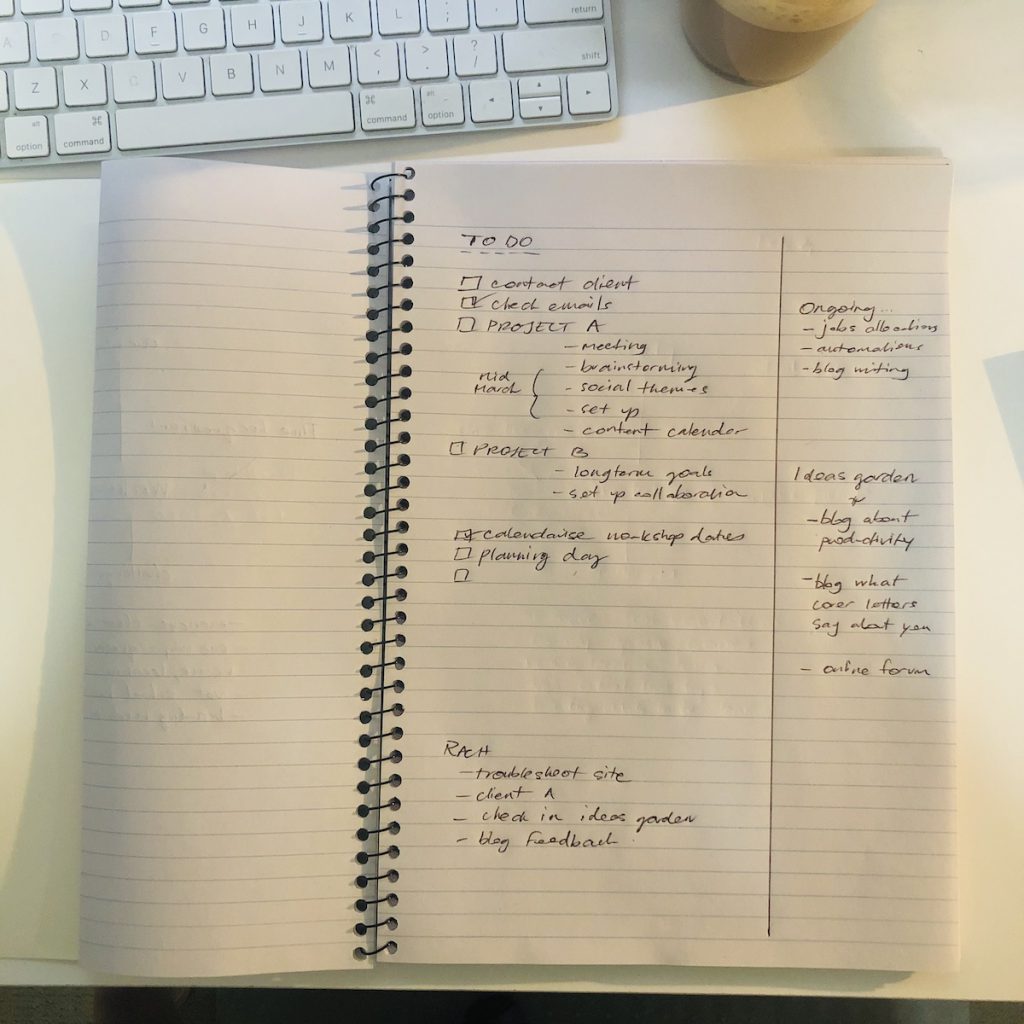 A D F G H J K L ; return
Z X C V B N M < , > . ? / shift
alt option ⌘ command ⌘ command alt option ◄ ▲ ▼ ►
TO DO
☐ contact client
☑ check emails
☐ PROJECT A
- meeting
- brainstorming
Mid
March
- social themes
- set up
- content calender
☐ PROJECT B
- longterm goals
- set up collaboration
☑ calendarise workshop dates
☐ planning day
☐
RACH
- troubleshoot site
- client A
- check in ideas garden
- blog feedback
Ongoing...
- jobs allocations
- automations
- blog writing
Ideas garden
- blog about
productivity
- blog what
cover letters
say about you
- online forum